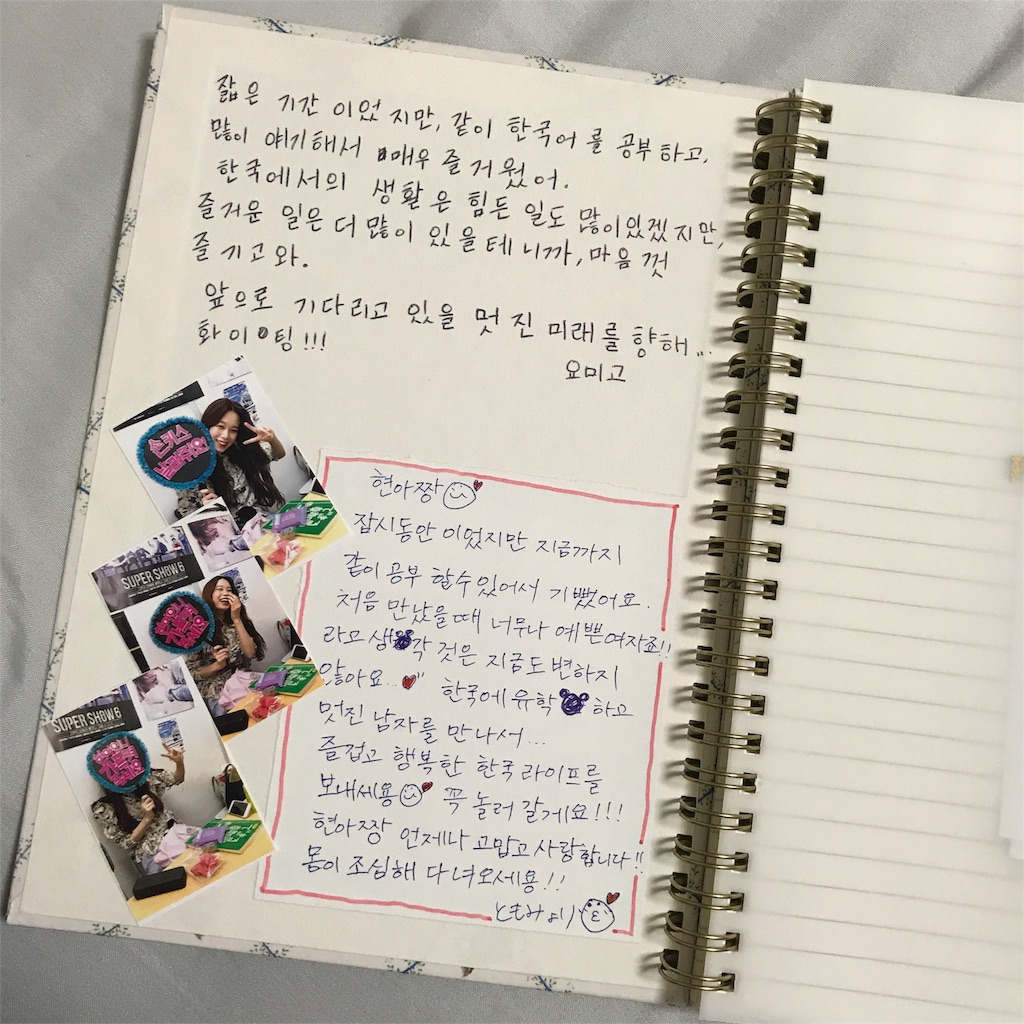 짧은 기간 이었지만, 같이 한국어를 공부하고,
많이 얘기해서 매우 즐거웠어.
한국에서의 생활은 힘든 일도 많이있겠지만,
즐거운 일은 더 많이 있을테니까, 마음껏
즐기고와.
앞으로 기다리고 있을 멋진 미래를 향해...
화이팅!!!
요미고
손키스
날려줘요!
SUPER SHOW 6
SUPER SHOW 6
현아짱
잠시동안 이었지만 지금까지
같이 공부 할수있어서 기뻤어요.
처음 만났을때 너무나 예쁜여자죠!!
라고 생각 것은 지금도 변하지
않아요...
한국에 유학하고
멋진 남자를 만나서...
즐겁고 행복한 한국 라이프를
보내세용 꼭 놀러 갈게요!!!
현아짱 언제나 고맙고 사랑합니다!!
몸이 조심해 다녀오세용!!
ともみより